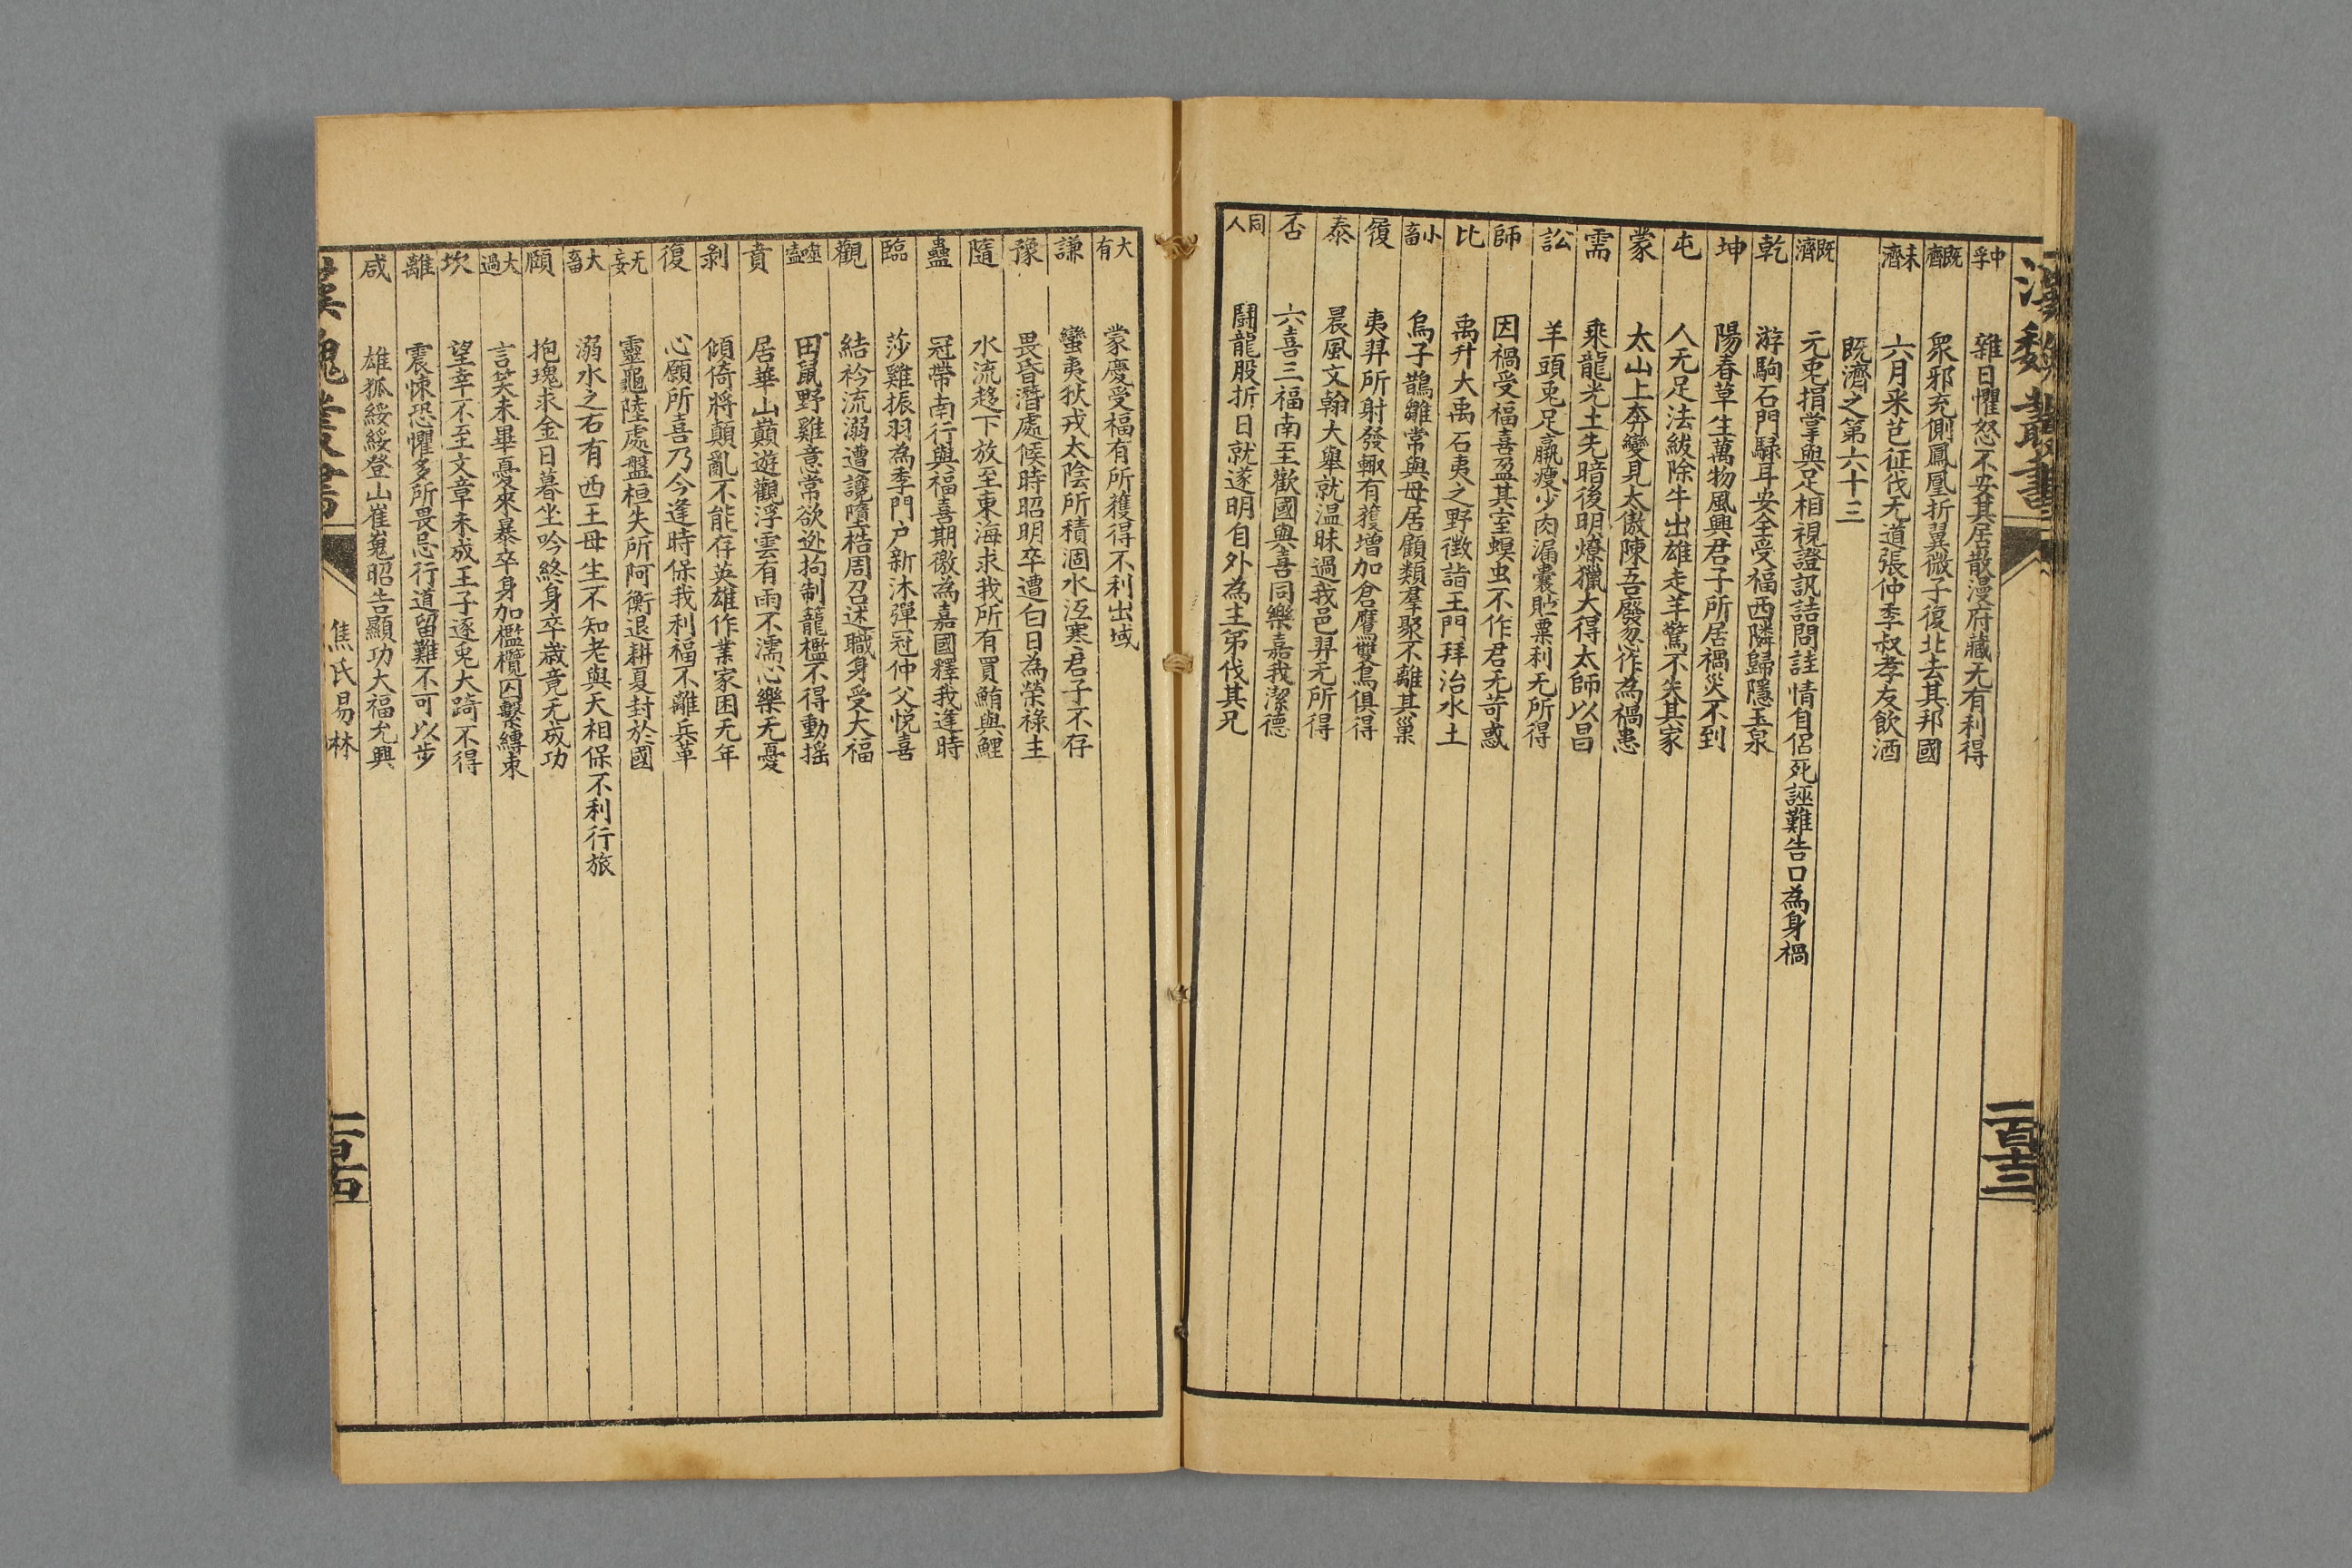 漢魏叢書
二百十三
中孚 雜曰懼怒不安其居散漫府藏无有利得
既濟 眾邪充側鳳凰折翼微子復北去其邦國
未濟 六月采芑征伐无道張仲季叔孝友飲酒
既濟之第六十三
既濟 元兎捐掌與足相視證訊詰問誰情自侶死誣難告口為身禍
乾 游駒石門騄耳安全受福西隣歸隱玉泉
坤 陽春草生萬物風興君子所居禍災不到
屯 人无足法紱除牛出雄走羊驚不失其家
蒙 太山上奔變見太傲陳吾廢忽作為禍患
需 乘龍光土先暗後明燎獵大得太師以昌
訟 羊頭兎足羸瘦少肉漏囊貯粟利无所得
師 因禍受福喜盈其室螟虫不作君无苛惑
比 禹升大禹石夷之野徵詣王門拜治水土
小畜 烏子鵲雛常與母居顧類羣聚不離其巢
履 夷羿所射發輙有獲增加倉鷹雙鳥俱得
泰 晨風文翰大舉就温昧過我邑羿无所得
否 六喜三福南至歡國與喜同樂嘉我潔德
同人 鬭龍股折日就遂明自外為主第伐其兄
大有 蒙慶受福有所獲得不利出域
謙 蠻夷狄戎太陰所積涸水沍寒君子不存
豫 畏昏潛處候時昭明卒遭白日為榮祿主
隨 水流趍下放至東海求我所有買鮪與鯉
蠱 冠帶南行與福喜期徼為嘉國釋我逢時
臨 莎雞振羽為季門户新沐彈冠仲父悅喜
觀 結衿流溺遭讒墮梏周召述職身受大福
噬嗑 田鼠野雞意常欲逊拘制籠檻不得動揺
賁 居華山巔遊觀浮雲有雨不濡心樂无憂
剥 傾倚將顛亂不能存英雄作業家困无年
復 心願所喜乃今逢時保我利福不離兵革
无妄 靈龜陸處盤桓失所阿衡退耕夏封於國
大畜 溺水之右有西王母生不知老與天相保不利行旅
頤 抱瑰求金日暮坐吟終身卒歲竟无成功
大過 言笑未畢憂來暴卒身加檻纜囚繫縛束
坎 望幸不至文章未成王子逐兎大踦不得
離 震悚恐懼多所畏忌行道留難不可以步
咸 雄狐綏綏登山崔嵬昭告顯功大福允興
漢魏叢書
焦氏易林
二百十四